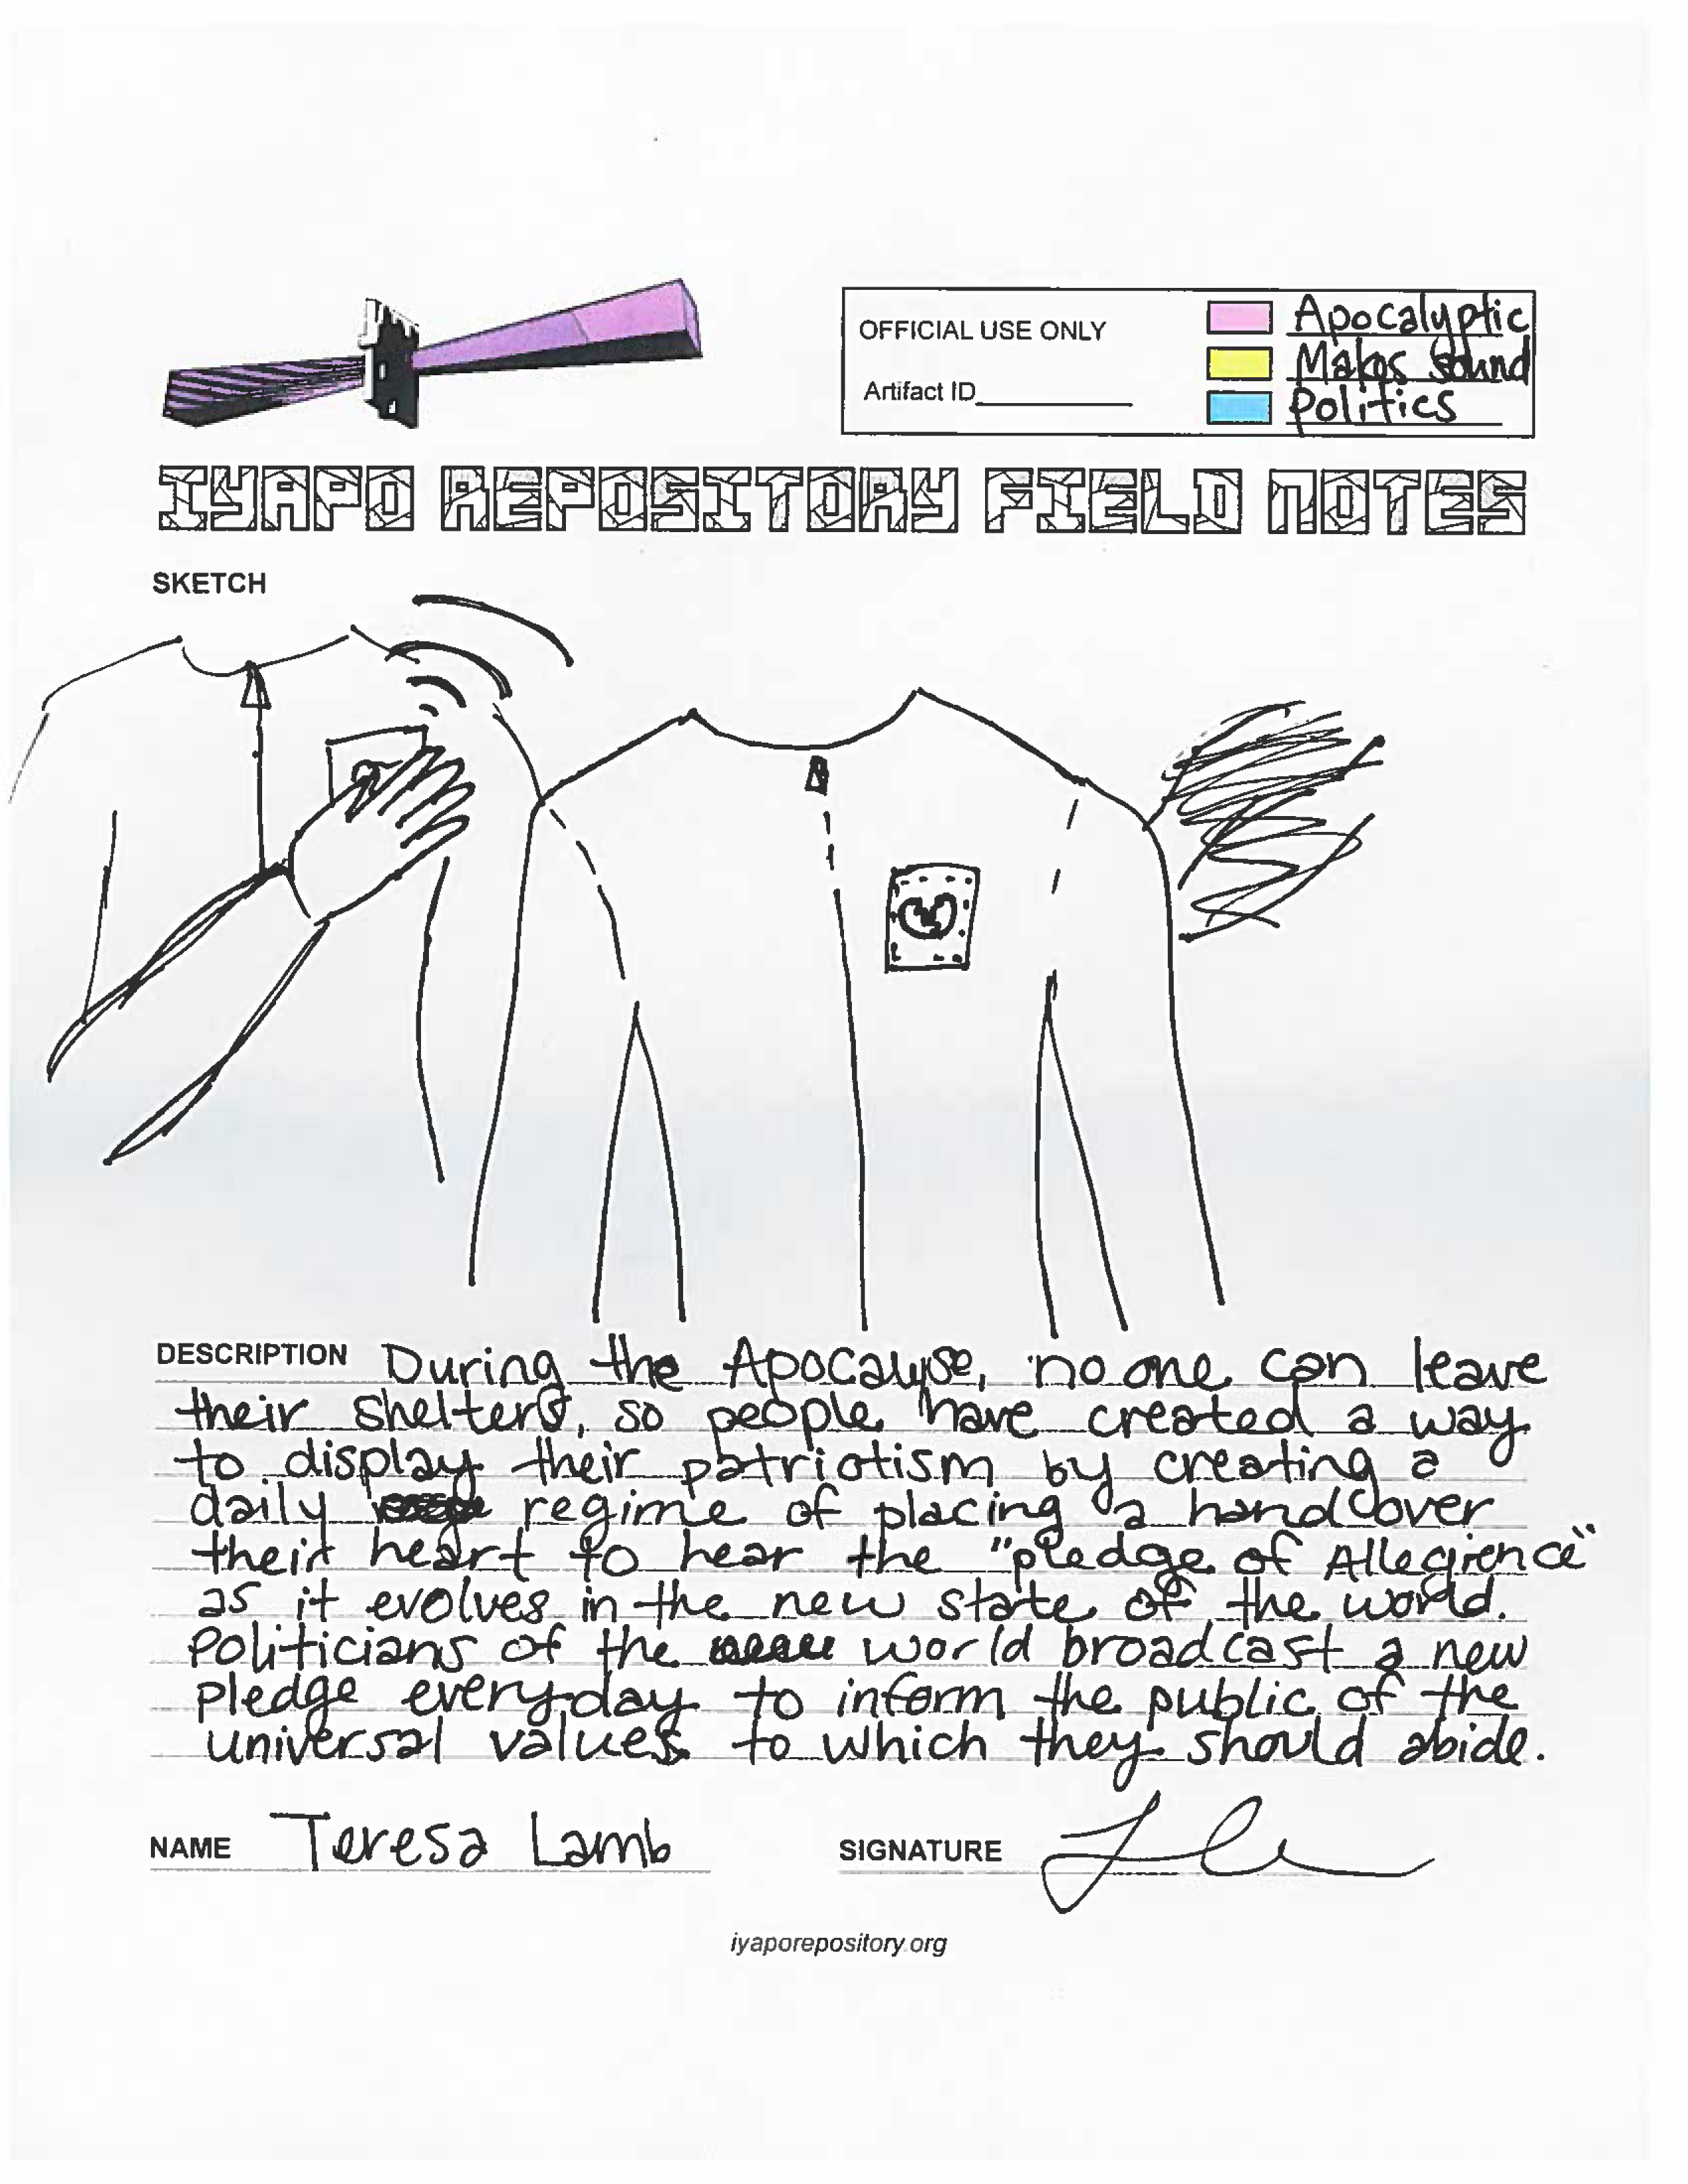 OFFICIAL USE ONLY
Artifact ID
Apocalyptic
Makes sound
Politics
IYAPO REPOSITORY FIELD NOTES
SKETCH
DESCRIPTION During the Apocalyse, no one can leave
their shelters, so people have created a way
to display their patriotism by creating a
daily regime of placing a hand over
their heart to hear the "pledge of Allegience"
as it evolves in the new state of the world.
Politicians of the world broadcast a new
pledge everyday to inform the public of the
universal values to which they should abide.
NAME Teresa Lamb
SIGNATURE
iyaporepository.org